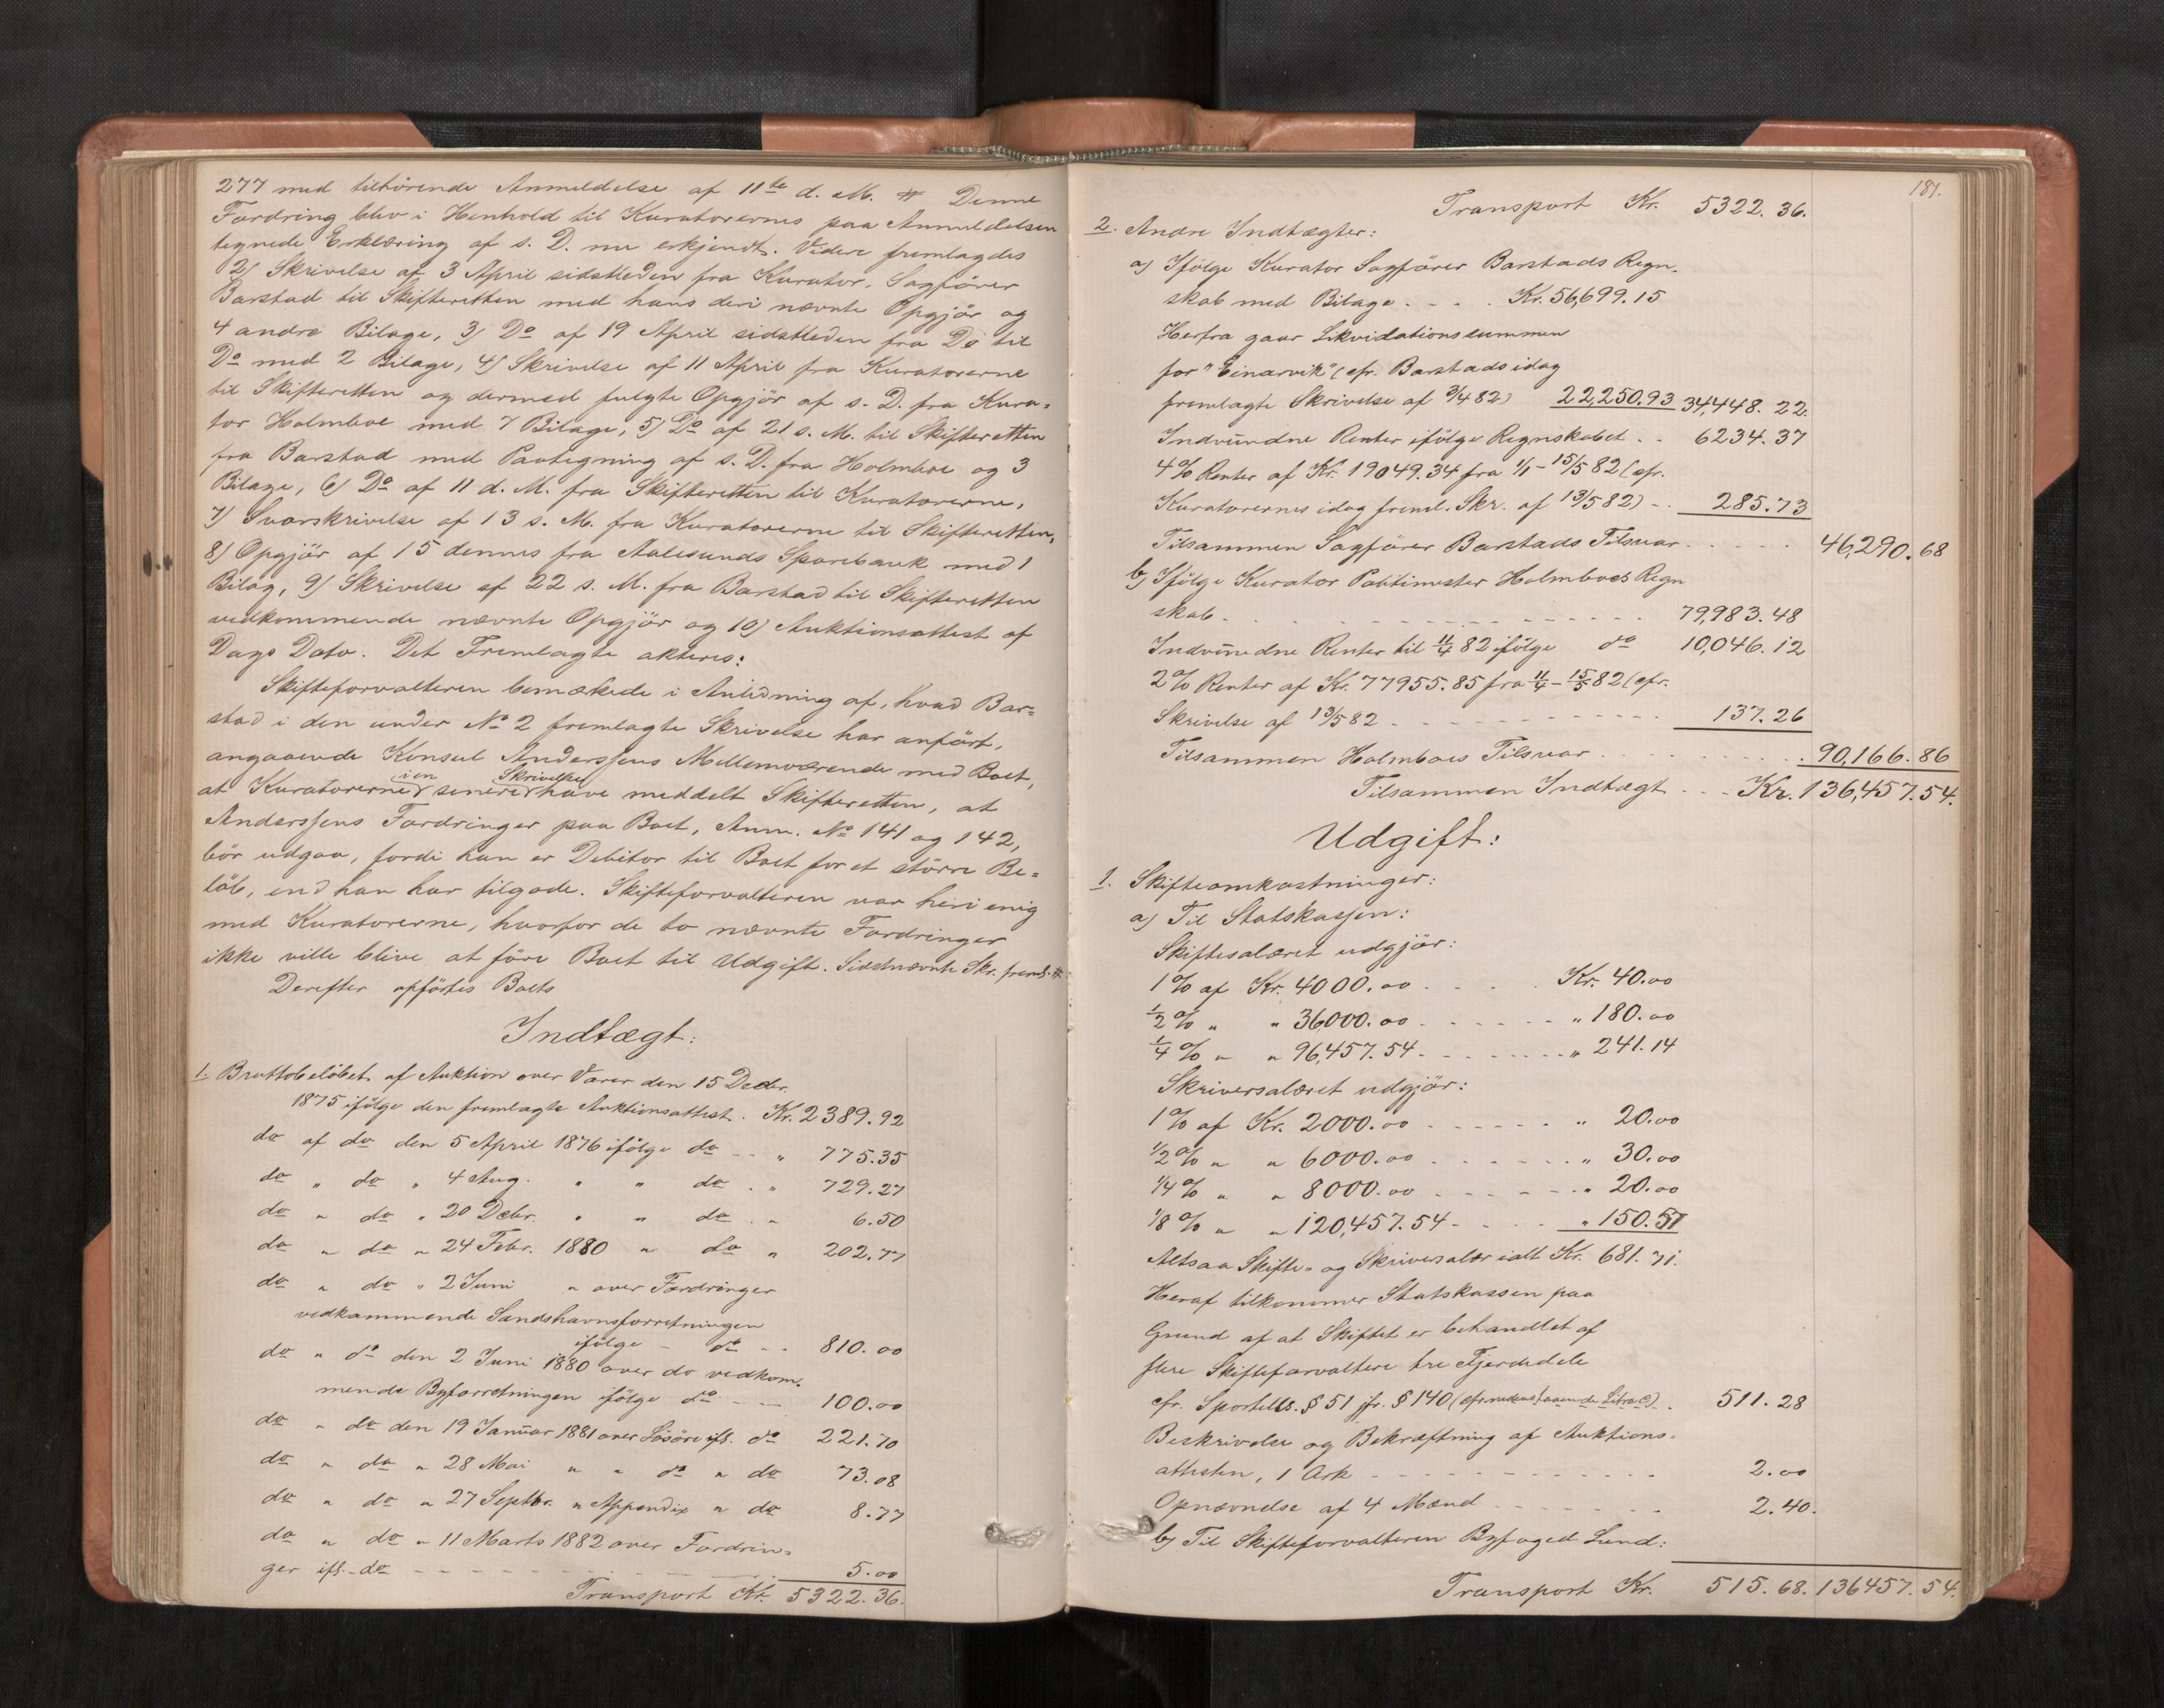 277 med tilhörende Anmeldelse af 11te d. M. # Denne
Fordring blev i Henhold til Kuratorernes paa Anmeldelsen
tegnede Erklæring af s. D. nu erkjendt. Videre fremlagdes
2) Skrivelse af 3 April sidstleden fra Kurator, Sagförer
Barstad til Skifteretten med hans deri nævnte Opgjör og
4 andre Bilage, 3) Do af 19 April sidstleden fra Do til
Do med 2 Bilage, 4) Skrivelse af 11 April fra Kuratorerne
til Skifteretten og dermed fulgte Opgjör af s. D. fra Kura=
tor Holmboe med 7 Bilage, 5) Do af 21 s. M. til Skifteretten
fra Barstad med Paategning af s. D. fra Holmboe og 3
Bilage, 6) Do af 11 d. M. fra Skifteretten til Kuratorerne,
7) Svarskrivelse af 13 s. M. fra Kuratorerne til Skifteretten,
8) Opgjör af 15 dennes fra Aalesunds Sparebank med 1
Bilag, 9) Skrivelse af 22 s. M. fra Barstad til Skifteretten
vedkommende nævnte Opgjör og 10) Auktionsattest af
Dags Dato. Det Fremlagte akteres:
Skifteforvalteren bemærkede i Anledning af, hvad Bar=
stad i den under No 2 fremlagte Skrivelse har anfört,
angaaende Konsul Anderssens Mellemværende med Boet,
at Kuratorerne i en senere Skrivelse have meddelt Skifteretten, at
Anderssens Fordringer paa Boet, Anm. No 141 og 142,
bör udgaa, fordi han er Debitor til Boet for et större Be=
löb, end han har tilgode. Skifteforvalteren var heri enig
med Kuratorerne, hvorfor de to nævnte Fordringer
ikke ville blive at före Boet til Udgift. Sidstnævnte Skr. freml. #
Derefter opförtes Boets
Indtægt:
1. Bruttobelöbet af Auktion over Varer den 15 Decbr.
1875 ifölge den fremlagte Auktionsattest . Kr. 2389.92
do af do den 5 April 1876 ifölge do - - " 775.35
do " do " 4 Aug. " " do . " 729.27
do " do " 20 Decbr. " " do . " 6.50
do " do " 24 Febr. 1880 " do " 202.77
do " do " 2 Juni " over Fordringer
vedkommende Sandshavnsforretningen
ifölge - do - - 810.00
do " do den 2 Juni 1880 over do vedkom=
mende Byforretningen ifölge do - - 100.00
do " do den 19 Januar 1881 over Lösöre ifl. do 221.70
do " do " 28 Mai " " do " do 73.08
do " do " 27 Septbr. " Appendix " do 8.77
do " do " 11 Marts 1882 over Fordrin=
ger ifl. do - - - - 5.00
Transport Kr. 5322.36.
181.
Transport Kr. 5322.36.
2. Andre Indtægter:
a) Ifölge Kurator Sagförer Barstads Regn=
skab med Bilage . . . . Kr. 56,699.15
Herfra gaar Likvidationssummen
for "Einarvik" (cfr. Barstads idag
fremlagte Skrivelse af 3/4 82) 22,250.93 34,448.22.
Indvundne Renter ifölge Regnskabet . . 6234.37
4 % Renter af Kr. 19049.34 fra 1/1 - 15/5 82 (cfr.
Kuratorernes idag freml. Skr. af 13/5 82) - . 285.73
Tilsammen Sagförer Barstads Tilsvar . . . . 46,290.68
b) Ifölge Kurator Politimester Holmboes Regn
skab . . . . 79,983.48
Indvundne Renter til 11/4 82 ifölge do 10,046.12
2 % Renter af Kr. 77955.85 fra 11/4 - 15/5 82 (cfr.
Skrivelse af 13/5 82 - - - - 137.26
Tilsammen Holmboes Tilsvar . . . . 90,166.86
Tilsammen Indtægt - - - Kr. 136,457.54.
Udgift:
1. Skifteomkostninger:
a) Til Statskassen:
Skiftesalæret udgjör:
1 % af Kr. 4000.00 . . . . Kr. 40.00
1/2 % " " 36000.00 - - - - " 180.00
1/4 % " " 96,457.54 - - - - " 241.14
Skriversalæret udgjör:
1 % af Kr. 2000.00 - - - - " 20.00
1/2 % " " 6000.00 - - - - " 30.00
1/4 % " " 8000.00 - - - - " 20.00
1/8 % " " 120,457.54 - - - - " 150.57
Altsaa Skifte- og Skriversalær ialt Kr. 681.71.
Heraf tilkommer Statskassen paa
Grund af at Skiftet er behandlet af
flere Skifteforvaltere tre Fjerdedele
cfr. Sportells. § 51 jfr. § 140 (cfr. nedenstaaende Litra c) . 511.28
Beskrivelse og Bekræftning af Auktions=
attesten, 1 Ark - - - - 2.00
Opnævnelse af 4 Mænd - - - - 2.40.
b) Til Skifteforvalteren Byfoged Lund:
Transport Kr. 515.68. 136457.54.